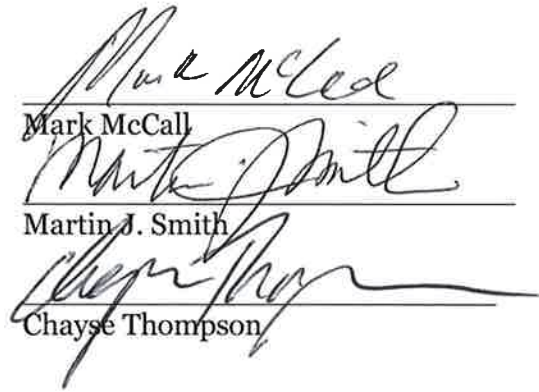 Mark McCall
Mark McCall
Martin J. Smith
Martin J. Smith
Chayse Thompson